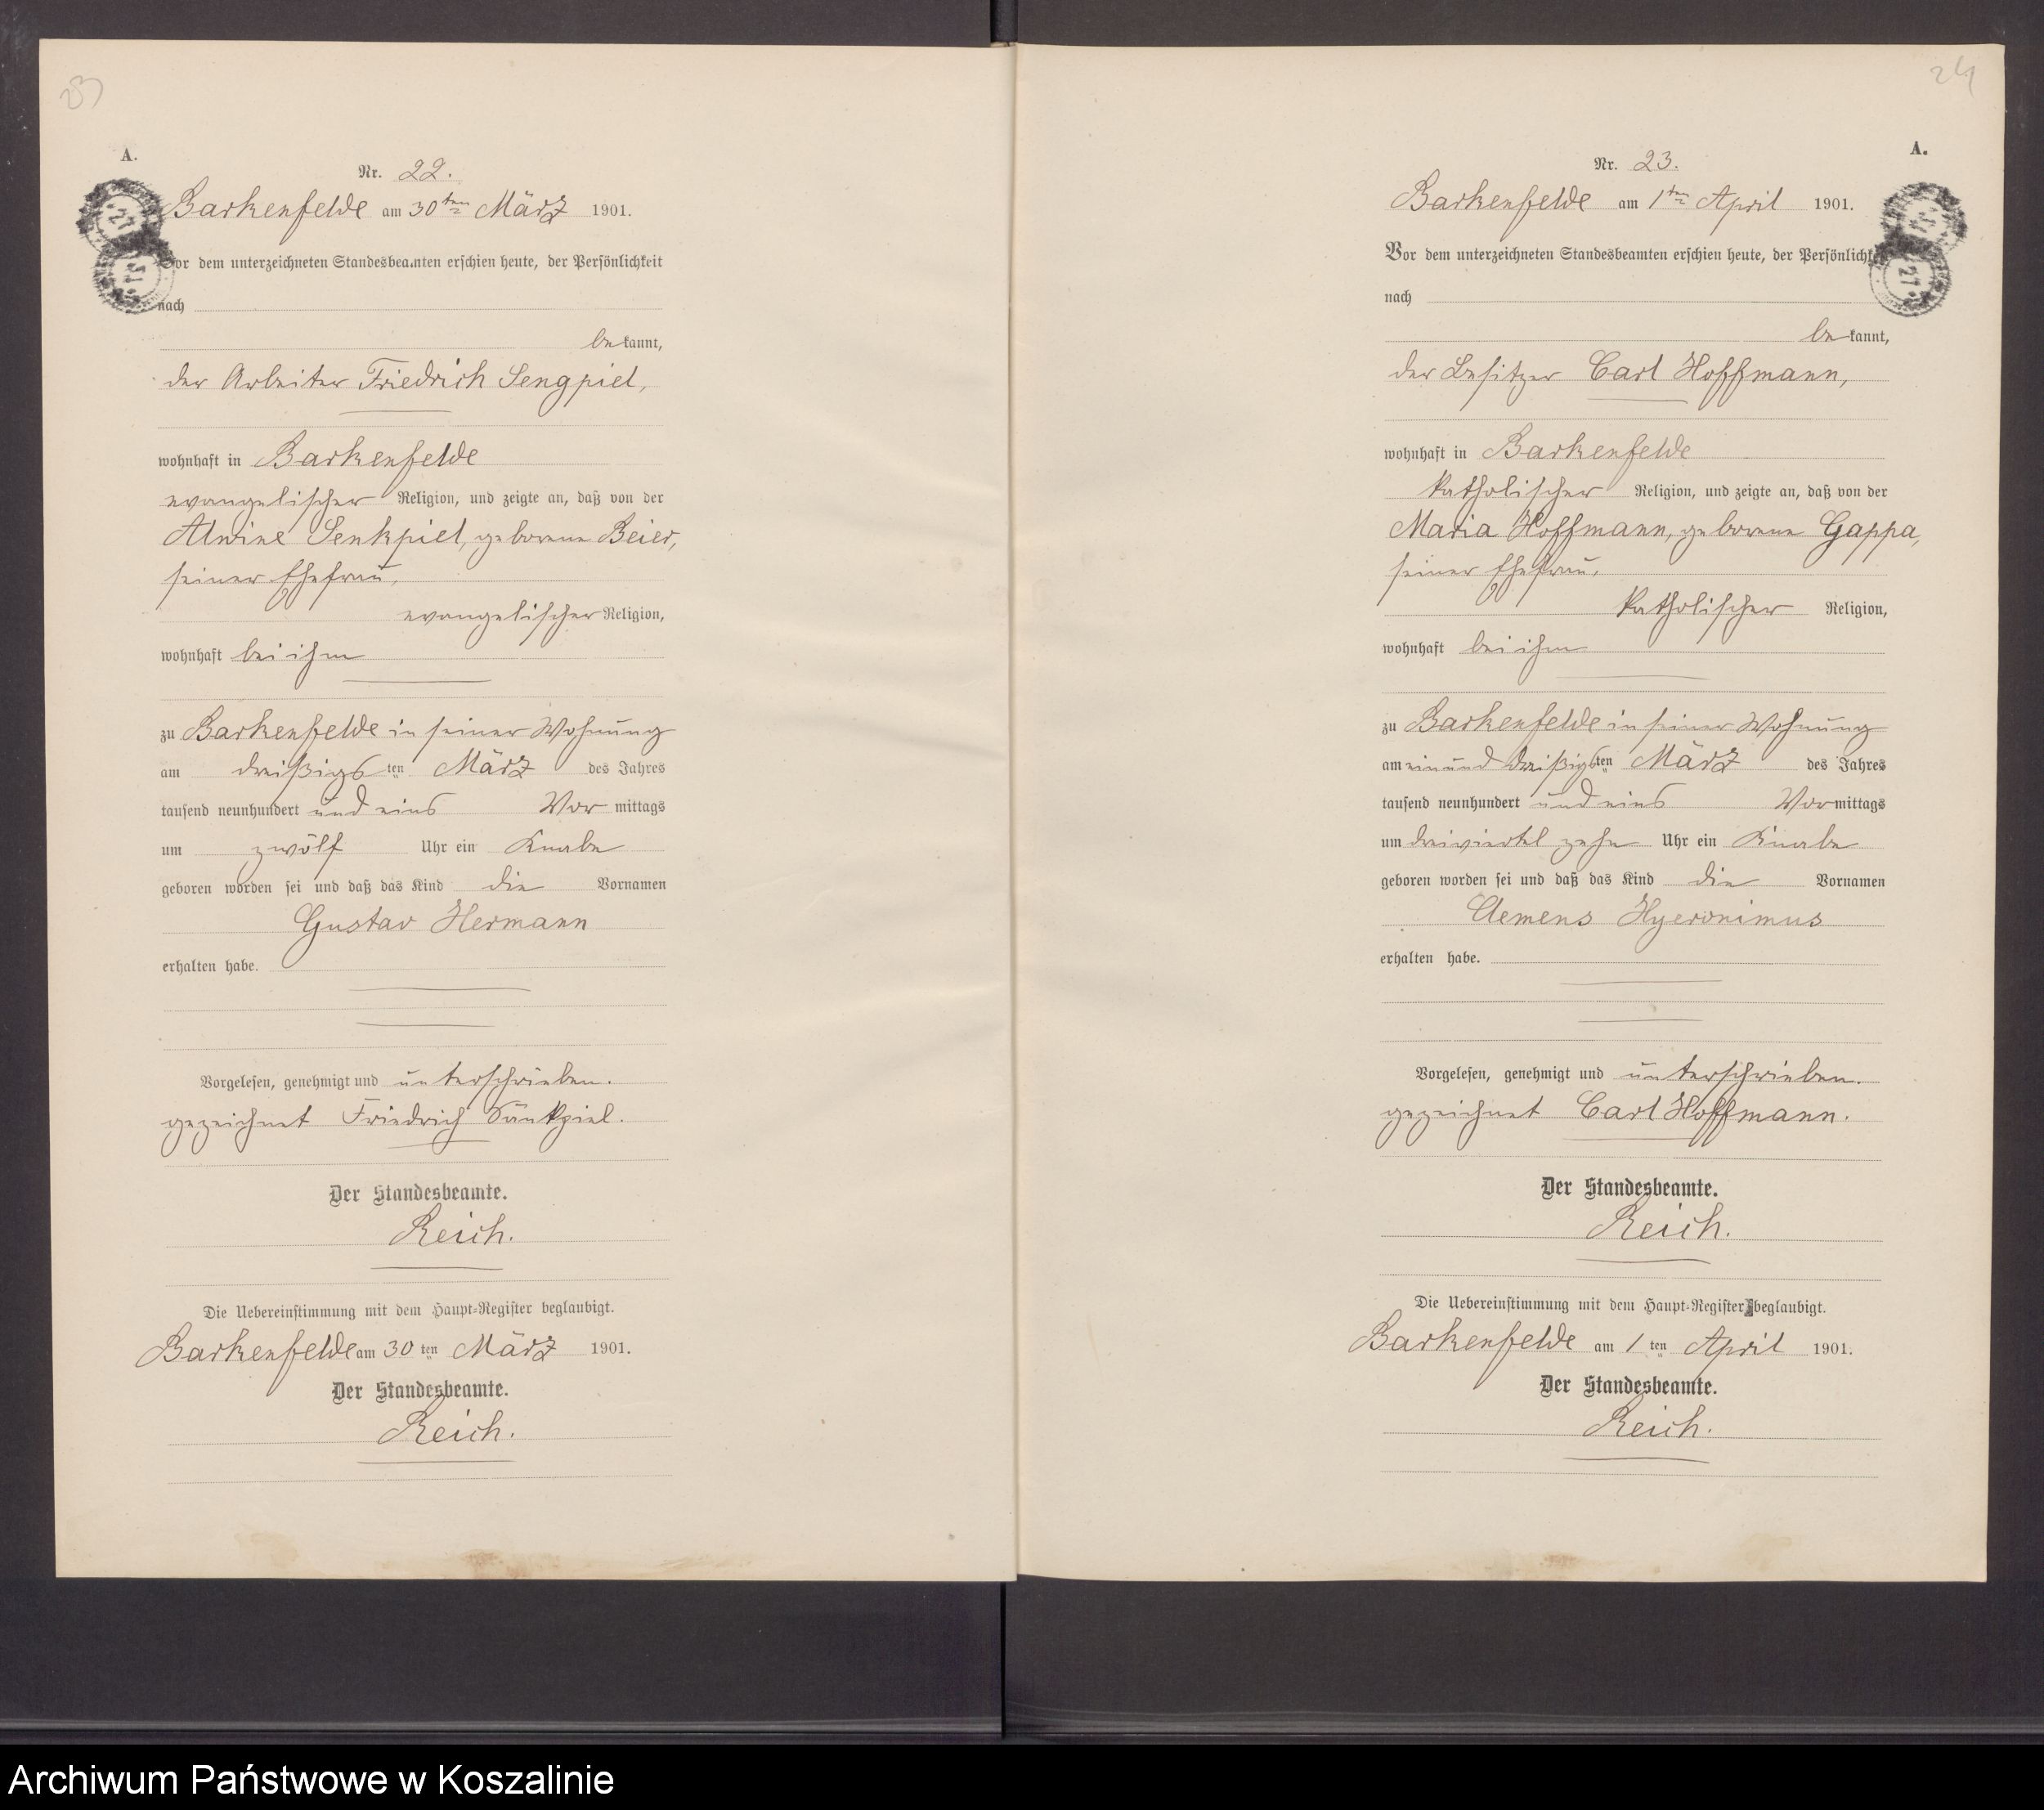 23
A.
Nr. 22.
Barkenfelde am 30ten März 1901.
Vor dem unterzeichneten Standesbeamten erschien heute, der Persönlichkeit
nach
be kannt,
der Arbeiter Friedrich Sengpiel,
wohnhaft in Barkenfelde
evangelischer Religion, und zeigte an, daß von der
Alwine Senkpiel, geborene Beier,
seiner Ehefrau,
evangelischer Religion,
wohnhaft bei ihm
zu Barkenfelde in seiner Wohnung
am dreißigs ten März des Jahres
tausend neunhundert und eins Vor mittags
um zwölf Uhr ein Knabe
geboren worden sei und daß das Kind die Vornamen
Gustav Hermann
erhalten habe.
Vorgelesen, genehmigt und unterschrieben.
gezeichnet Friedrich Sänkpiel.
Der Standesbeamte.
Reich.
Die Uebereinstimmung mit dem Haupt-Register beglaubigt.
Barkenfelde am 30 ten März 1901.
Der Standesbeamte.
Reich.
24
A.
Nr. 23.
Barkenfelde am 1ten April 1901.
Vor dem unterzeichneten Standesbeamten erschien heute, der Persönlichkeit
nach
be kannt,
der Besitzer Carl Hoffmann,
wohnhaft in Barkenfelde
katholischer Religion, und zeigte an, daß von der
Maria Hoffmann, geborene Gappa,
seiner Ehefrau,
katholischer Religion,
wohnhaft bei ihm
zu Barkenfelde in seiner Wohnung
am einund dreißigsten März des Jahres
tausend neunhundert und eins Vormittags
um dreiviertel zehn Uhr ein Knabe
geboren worden sei und daß das Kind die Vornamen
Clemens Hyeronimus
erhalten habe.
Vorgelesen, genehmigt und unterschrieben.
gezeichnet Carl Hoffmann.
Der Standesbeamte.
Reich.
Die Uebereinstimmung mit dem Haupt-Register beglaubigt.
Barkenfelde am 1 ten April 1901.
Der Standesbeamte.
Reich.
Archiwum Państwowe w Koszalinie